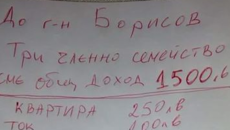 До г-н Борисов
Три членно семейство
общ доход 1500лв
КВАРТИРА 250лв
ТОК 100лв